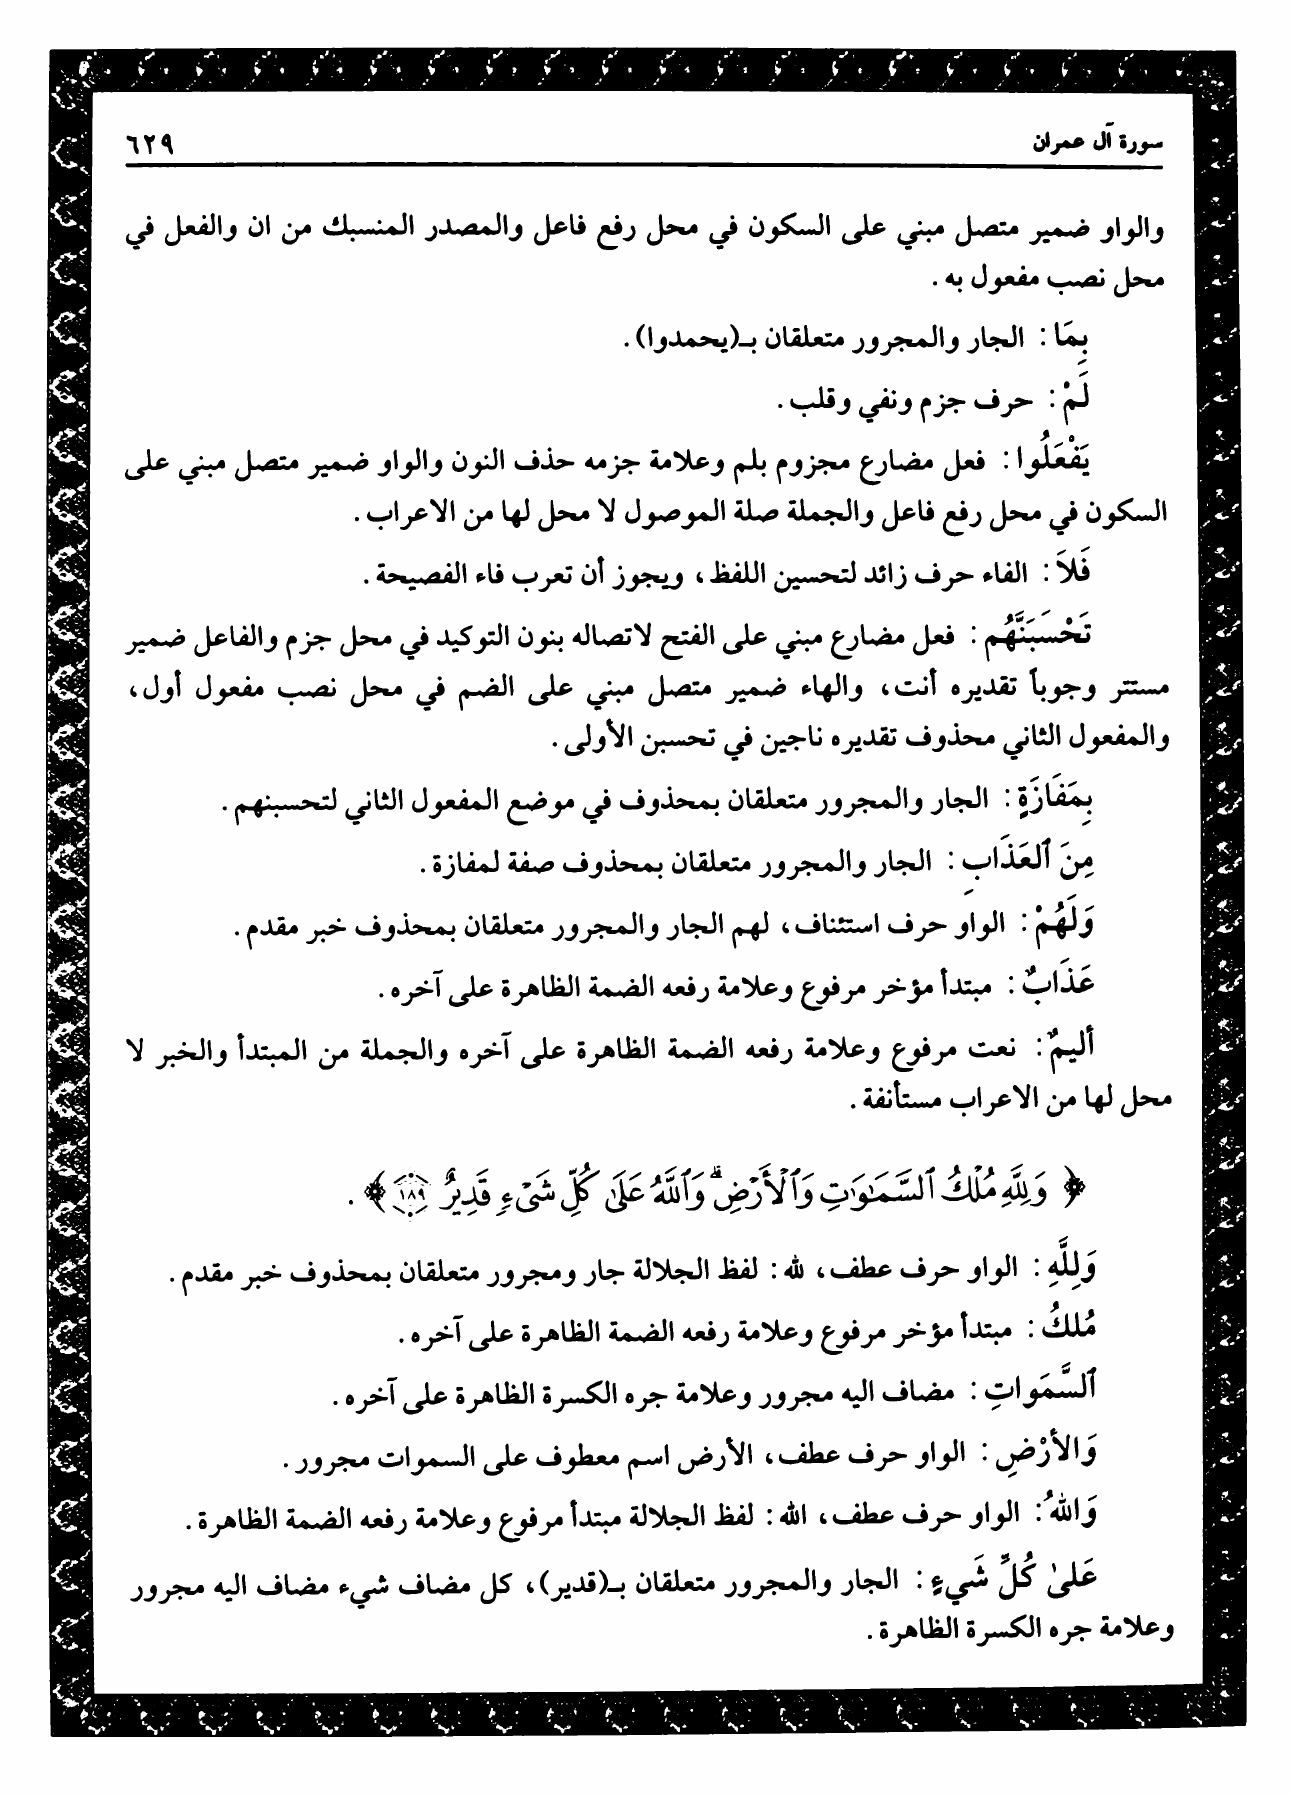 سورة آل عمران
٦٢٩
والواو ضمير متصل مبني على السكون في محل رفع فاعل والمصدر المنسبك من ان والفعل في
محل نصب مفعول به .
بِمَا : الجار والمجرور متعلقان بـ(يحمدوا) .
لَمْ : حرف جزم ونفي وقلب .
يَفْعَلُوا : فعل مضارع مجزوم بلم وعلامة جزمه حذف النون والواو ضمير متصل مبني على
السكون في محل رفع فاعل والجملة صلة الموصول لا محل لها من الاعراب .
فَلاَ : الفاء حرف زائد لتحسين اللفظ، ويجوز أن تعرب فاء الفصيحة .
تَحْسَبَنَّهُم : فعل مضارع مبني على الفتح لاتصاله بنون التوكيد في محل جزم والفاعل ضمير
مستتر وجوباً تقديره أنت، والهاء ضمير متصل مبني على الضم في محل نصب مفعول أول،
والمفعول الثاني محذوف تقديره ناجين في تحسبن الأولى .
بِمَفَازَةٍ : الجار والمجرور متعلقان بمحذوف في موضع المفعول الثاني لتحسبنهم .
مِنَ ٱلعَذَابِ : الجار والمجرور متعلقان بمحذوف صفة لمفازة .
وَلَهُمْ : الواو حرف استئناف، لهم الجار والمجرور متعلقان بمحذوف خبر مقدم .
عَذَابٌ : مبتدأ مؤخر مرفوع وعلامة رفعه الضمة الظاهرة على آخره .
أليمٌ : نعت مرفوع وعلامة رفعه الضمة الظاهرة على آخره والجملة من المبتدأ والخبر لا
محل لها من الاعراب مستأنفة .
﴿ وَلِلَّهِ مُلْكُ ٱلسَّمَٰوَٰتِ وَٱلْأَرْضِ ۗ وَٱللَّهُ عَلَىٰ كُلِّ شَىْءٍ قَدِيرٌ ١٨٩ ﴾ .
وَلِلَّهِ : الواو حرف عطف، لله : لفظ الجلالة جار ومجرور متعلقان بمحذوف خبر مقدم .
مُلكُ : مبتدأ مؤخر مرفوع وعلامة رفعه الضمة الظاهرة على آخره .
ٱلسَّمَواتِ : مضاف اليه مجرور وعلامة جره الكسرة الظاهرة على آخره .
وَالأرْضِ : الواو حرف عطف، الأرض اسم معطوف على السموات مجرور .
وَاللهُ : الواو حرف عطف، الله : لفظ الجلالة مبتدأ مرفوع وعلامة رفعه الضمة الظاهرة .
عَلىٰ كُلِّ شَيءٍ : الجار والمجرور متعلقان بـ(قدير)، كل مضاف شيء مضاف اليه مجرور
وعلامة جره الكسرة الظاهرة .